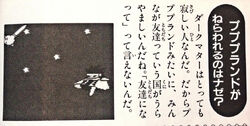 ププブランドが
ねらられるのはナゼ？
ダークマターはとっても
寂しい人なんだ。だからプ
ププランドみたいに、みん
なが友達っていう国がうら
やましいんだね。「友達にな
って」って言えないんだ。